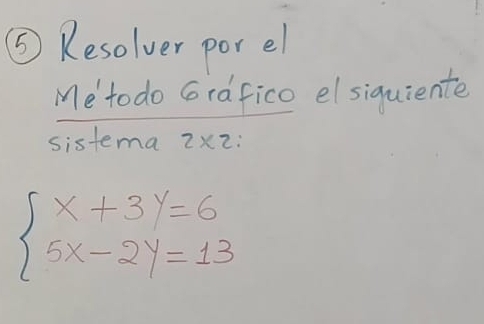 5 Resolver por el
Método Gráfico el siguiente
sistema 2x2:
x + 3y = 6
5x - 2y = 13